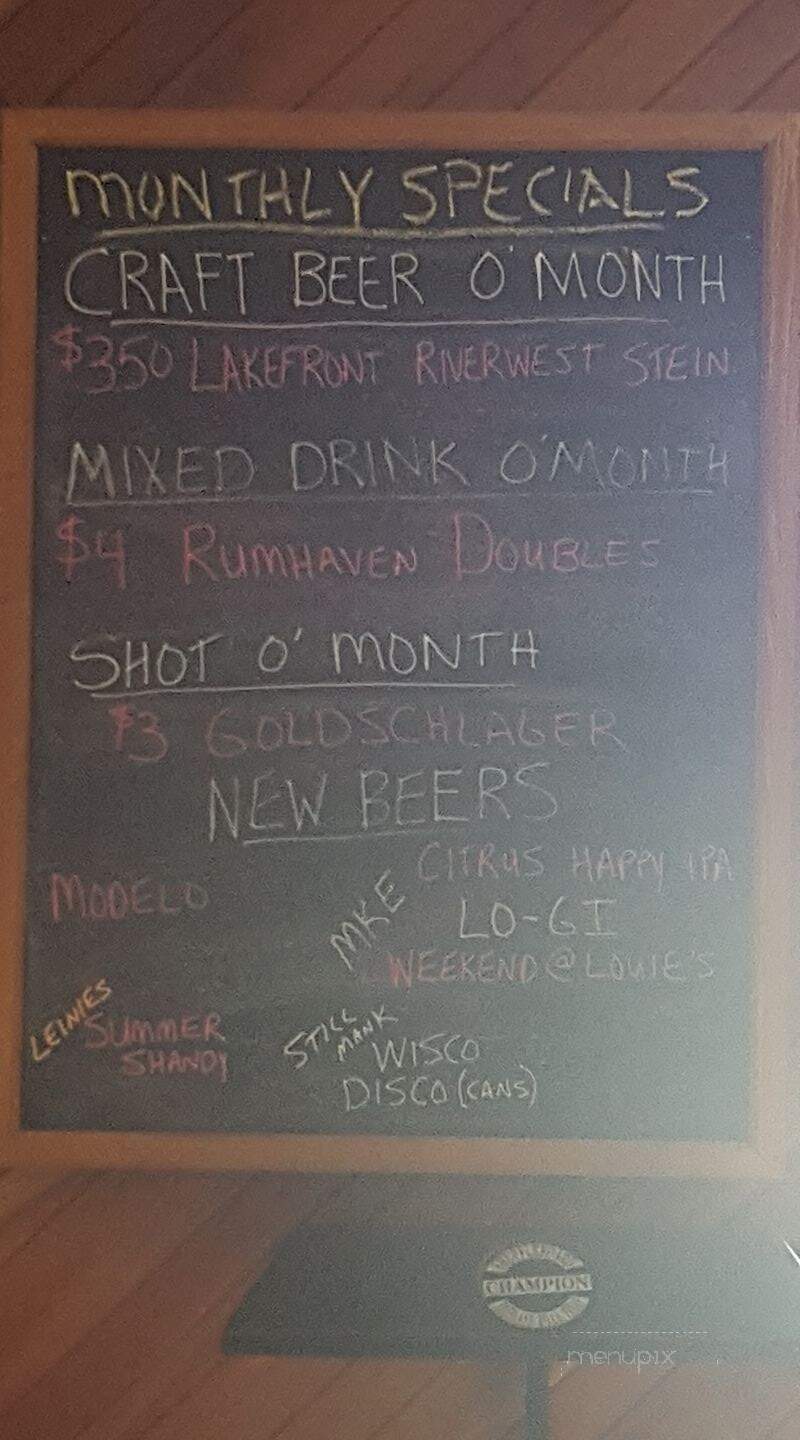 MONTHLY SPECIALS
CRAFT BEER O'MONTH
$350 LAKEFRONT RIVERWEST STEIN
MIXED DRINK O'MONTH
$4 RUMHAVEN DOUBLES
SHOT O' MONTH
$3 GOLDSCHLAGER
NEW BEERS
MODELO
MKE
CITRUS HAPPY IPA
LO-GI
WEEKEND @ LOUIE'S
LEINIES
SUMMER
SHANDY
STILL
MANK
WISCO
DISCO (CANS)
CHAMPION
menupix